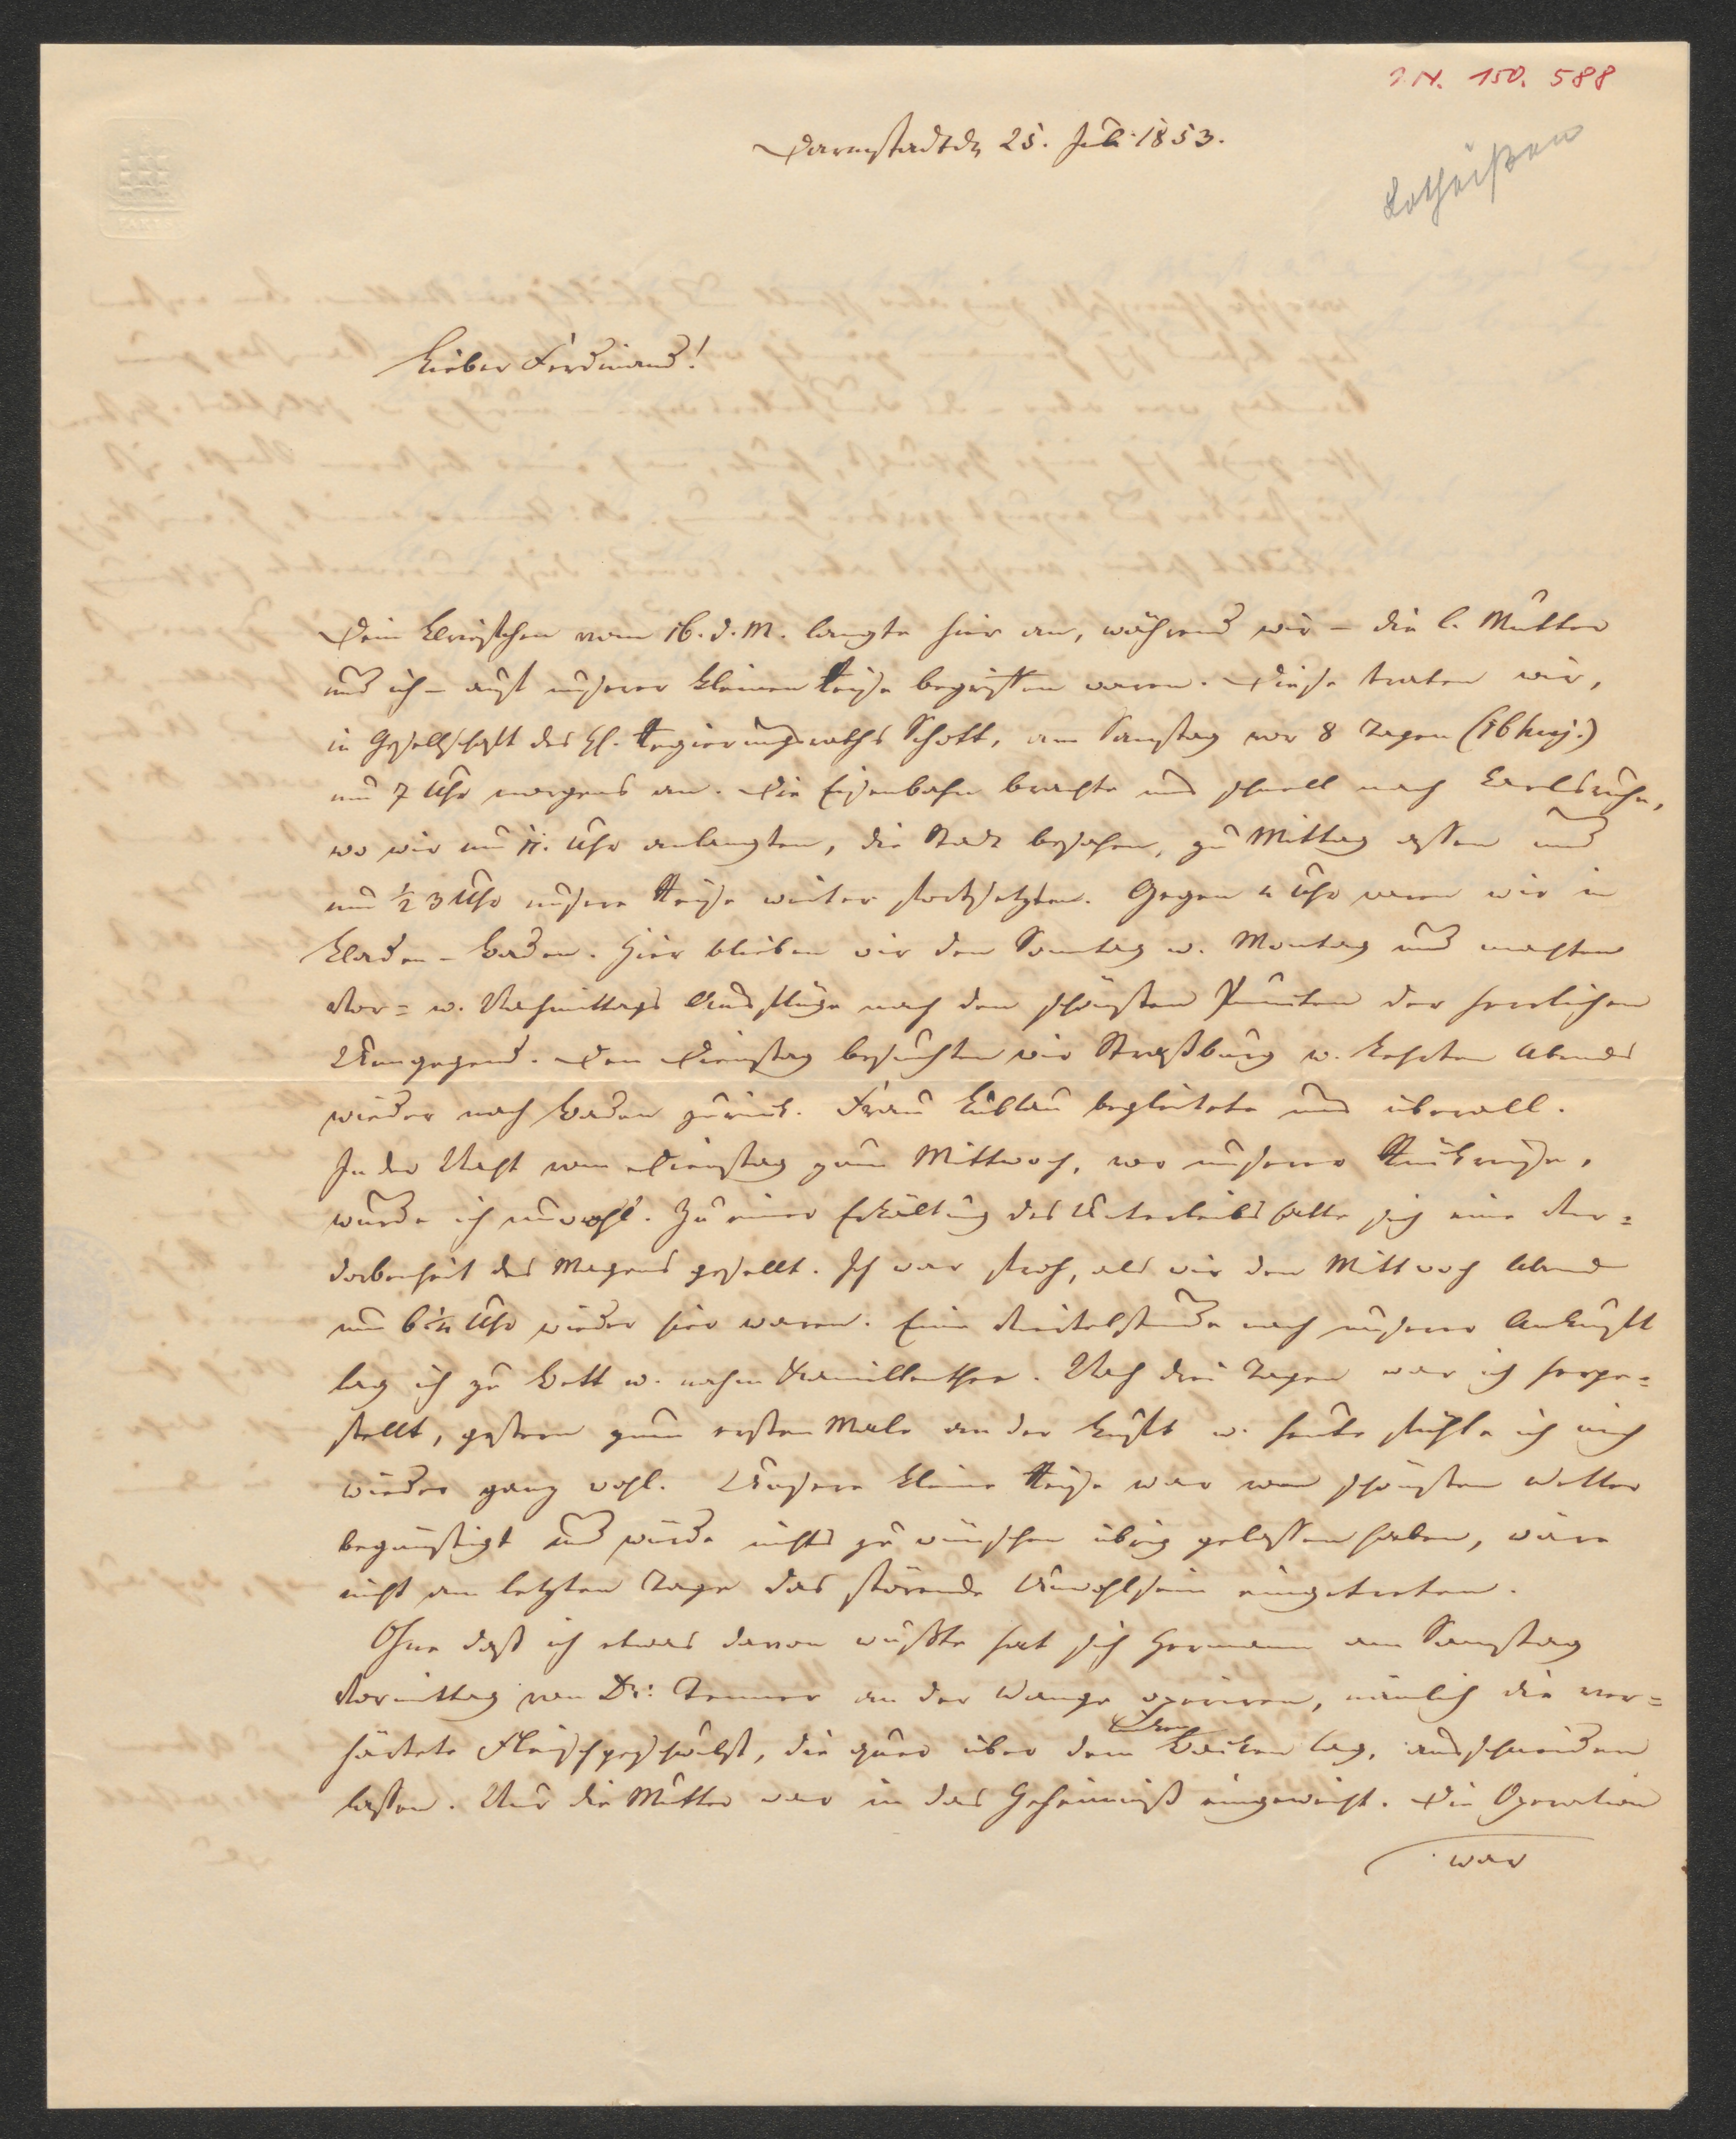 I. N. 150. 588
Lotheißen
Darmstadt d. 25. Juli 1853.
Lieber Ferdinand!
Dein Briefchen vom 16. d. M. langte hier an, während wir – die l. Mutter
und ich – auf unserer kleinen Reise begriffen waren. Diese traten wir,
in Gesellschaft des H. Regierungsraths Schott, am Samstag vor 8 Tagen (16 huj.)
um 7 Uhr morgens an. Die Eisenbahn brachte uns schnell nach Carlsruhe,
wo wir um 11. Uhr anlangten, die Stadt besahen, zu Mittag assen und
um ½ 3 Uhr unsere Reise weiter fortsetzten. Gegen 4 Uhr waren wir in
Baden-Baden. Hier blieben wir den Sonntag u. Montag und machten
Vor= u. Nachmittags Ausflüge nach den schönsten Punkten der herrlichen
Umgegend. Den Dienstag besuchten wir Straßburg u. kehrten Abends
wieder nach Baden zurück. Frau begleitete uns überall.
In der Nacht vom Dienstag zum Mittwoch, vor unserer Rückreise,
wurde ich unwohl. Zu einer Erkältung des Unterleibs hatte sich eine Ver=
dorbenheit des Magens gesellt. Ich war froh, als wir den Mittwoch Abend
um 6 ¼ Uhr wieder hier waren. Eine Viertelstunde nach unserer Ankunft
lag ich zu Bett u. nahm Kamillenthee. Nach drei Tagen war ich herge=
stellt, gestern zum ersten Male an der Luft u. heute fühle ich mich
wieder ganz wohl. Unsere kleine Reise war vom schönsten Wetter
begünstigt und würde nichts zu wünschen übrig gelassen haben, wäre
nicht am letzten Tage das störende Unwohlsein eingetreten.
Ohne daß ich etwas davon wußte hat sich Hermann am Samstag
Vormittag von Dr. Tenner an der Wange operiren, nämlich die ver=
härtete Fleischgeschwulst, die quer über dem Backen lag, ausschneiden
lassen. Nur die Mutter war in das Geheimniß eingeweiht. Die Operation
war